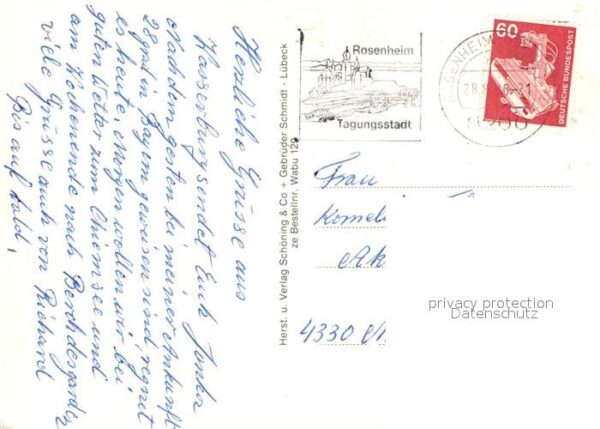 Herzliche Grüsse aus
Wasserburg sendet Euch
Nachdem gestern bei meiner Ankunft
28 grad in Bayern gewesen sind, regnet
es heute. Morgen wollen wir bei
guten Wetter zum Chiemsee und
am Wochenende nach Berchtesgarden
viele Grüsse auch von Richard
Bis auf bald,
Herst. u. Verlag Schöning & Co + Gebrüder Schmidt - Lübeck
ze Bestellnr. Wabu 129
Rosenheim
Tagungsstadt
ROSENHEIM
60
DEUTSCHE BUNDESPOST
Frau
Kornel
4330
privacy protection
Datenschutz